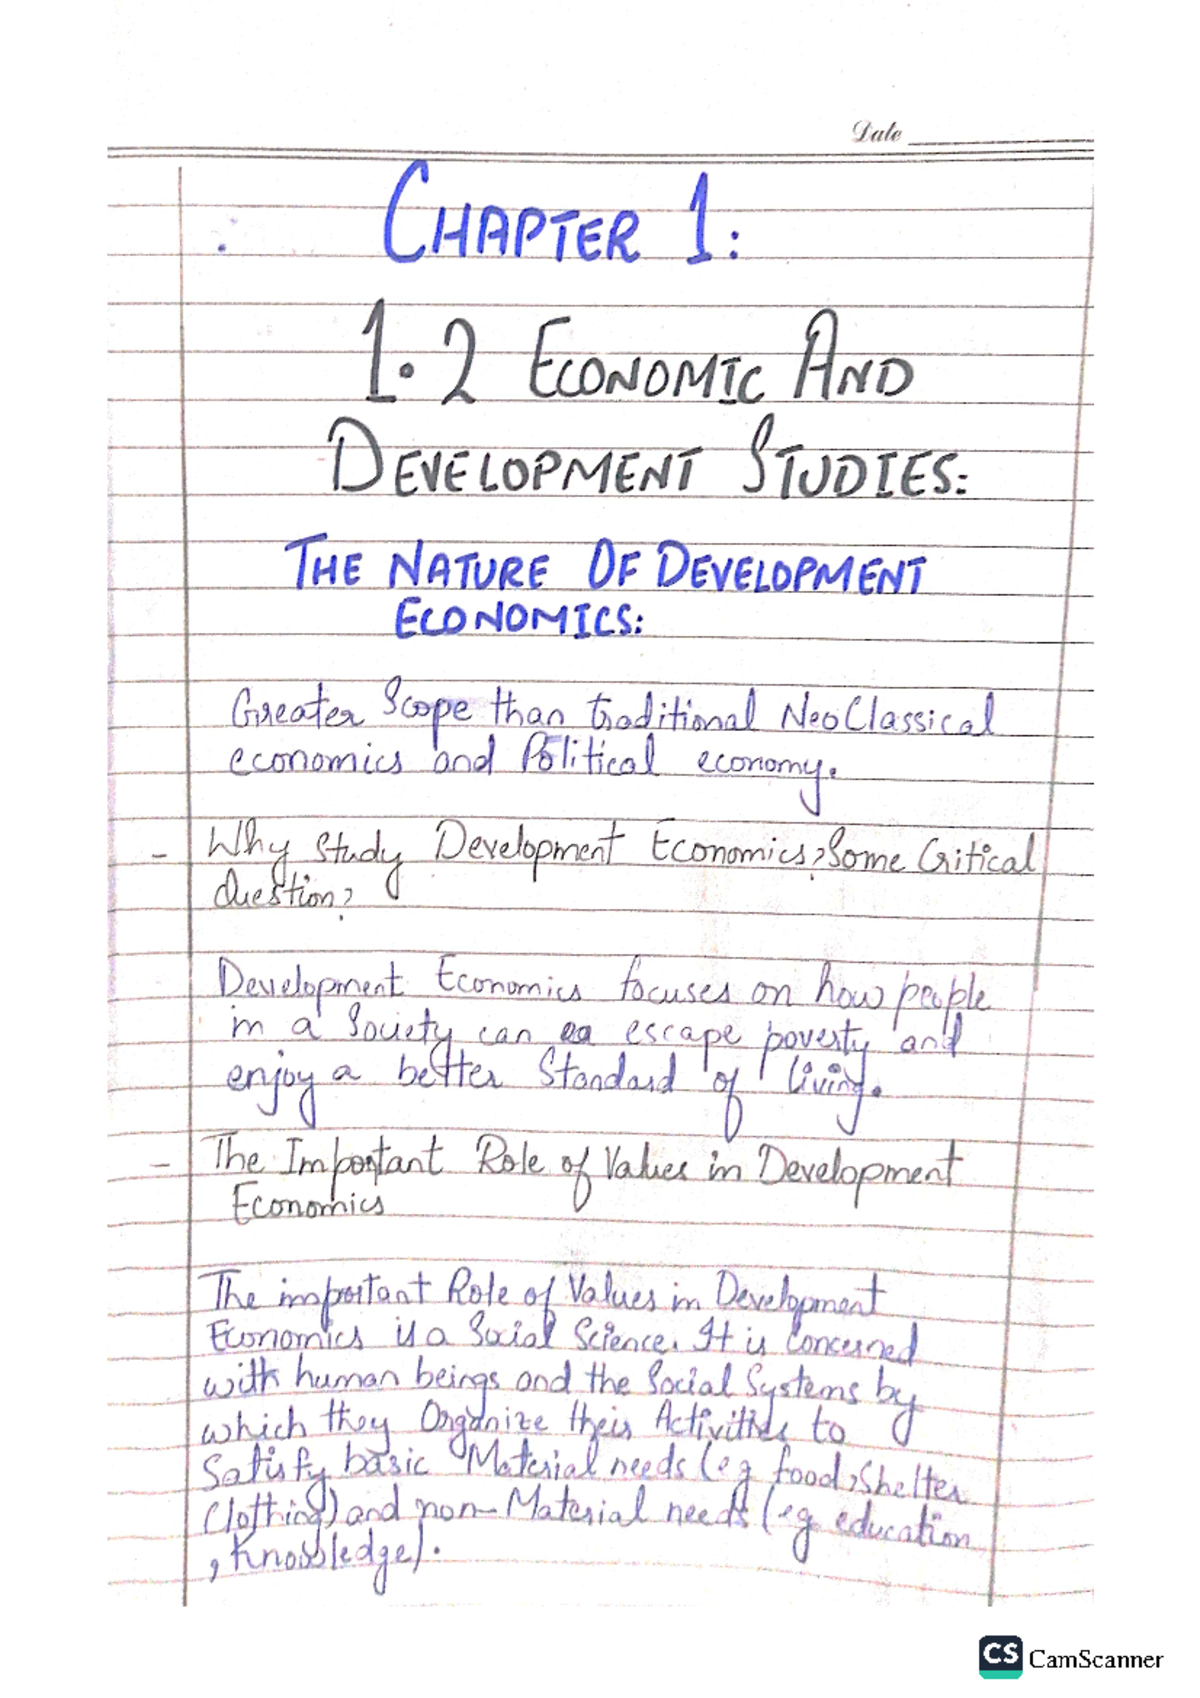 Date
CHAPTER 1:
1.2 ECONOMIC AND
DEVELOPMENT STUDIES:
THE NATURE OF DEVELOPMENT
ECONOMICS:
Greater Scope than traditional NeoClassical
economics and Political economy.
- Why Study Development Economics? Some Critical
Question?
Development Economics focuses on how people
in a Society can escape poverty and
enjoy a better Standard of living.
- The Important Role of Values in Development
Economics
The important Role of Values in Development
Economics is a Social Science. It is Concerned
with human beings and the Social Systems by
which they Organize their Activities to
Satisfy basic Material needs (eg food, Shelter
Clothing) and non-Material needs (eg education
, Knowledge).
CS CamScanner